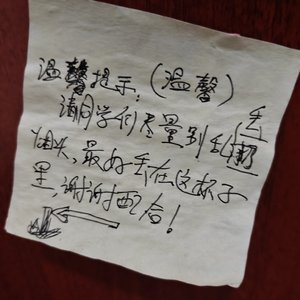 温馨提示：（温馨）
请同学们尽量别乱丢
烟头，最好丢在这杯子
里，谢谢配合！